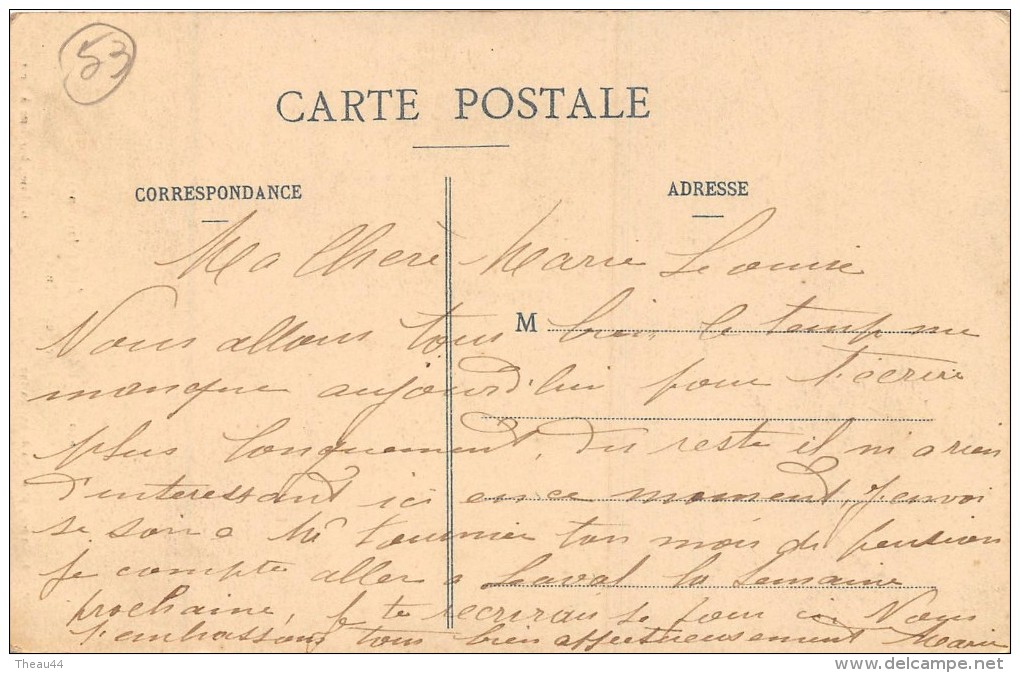 53
CARTE POSTALE
CORRESPONDANCE
ADRESSE
Ma Cherè Marie Louise
M
Nous allons tous bien le temp me
manque aujourd'hui pour t'écrire
plus longuement, du reste il ni a rien
d'interessant ici en ce moment, J'envoi
se soir a Me Tournier ton mois de pension
Je compte aller a Laval la semaine
prochaine, je te recrirai se jour ci Nous
t'embrassons tous bien affectueusement Marie
Theau44
delcampe.net